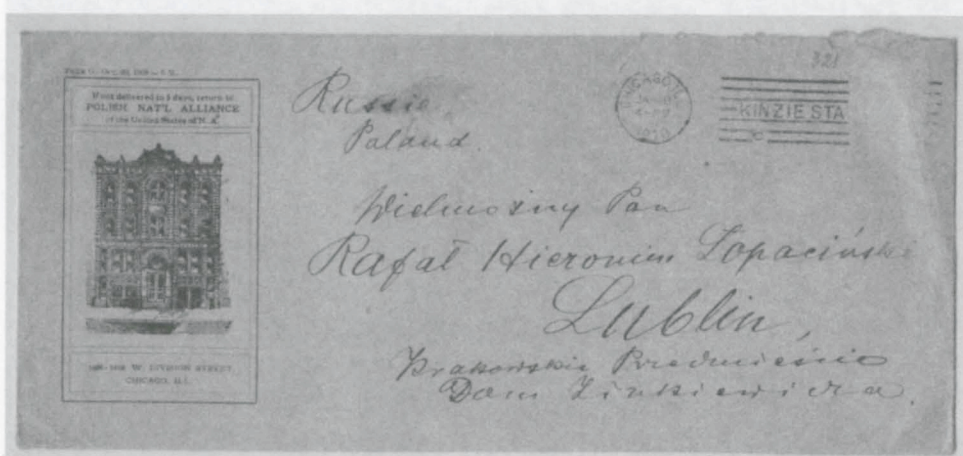 If not delivered in 5 days, return to
POLISH NAT'L ALLIANCE
of the United States of N. A.
W. DIVISION STREET,
CHICAGO, ILL.
Russia
Poland.
321
CHICAGO, ILL.
1910
KINZIE STA
Wielmożny Pan
Rafał Hieronim Łopaciński
Lublin,
Krakowskie Przedmieście
Dom Zinkiewicza.